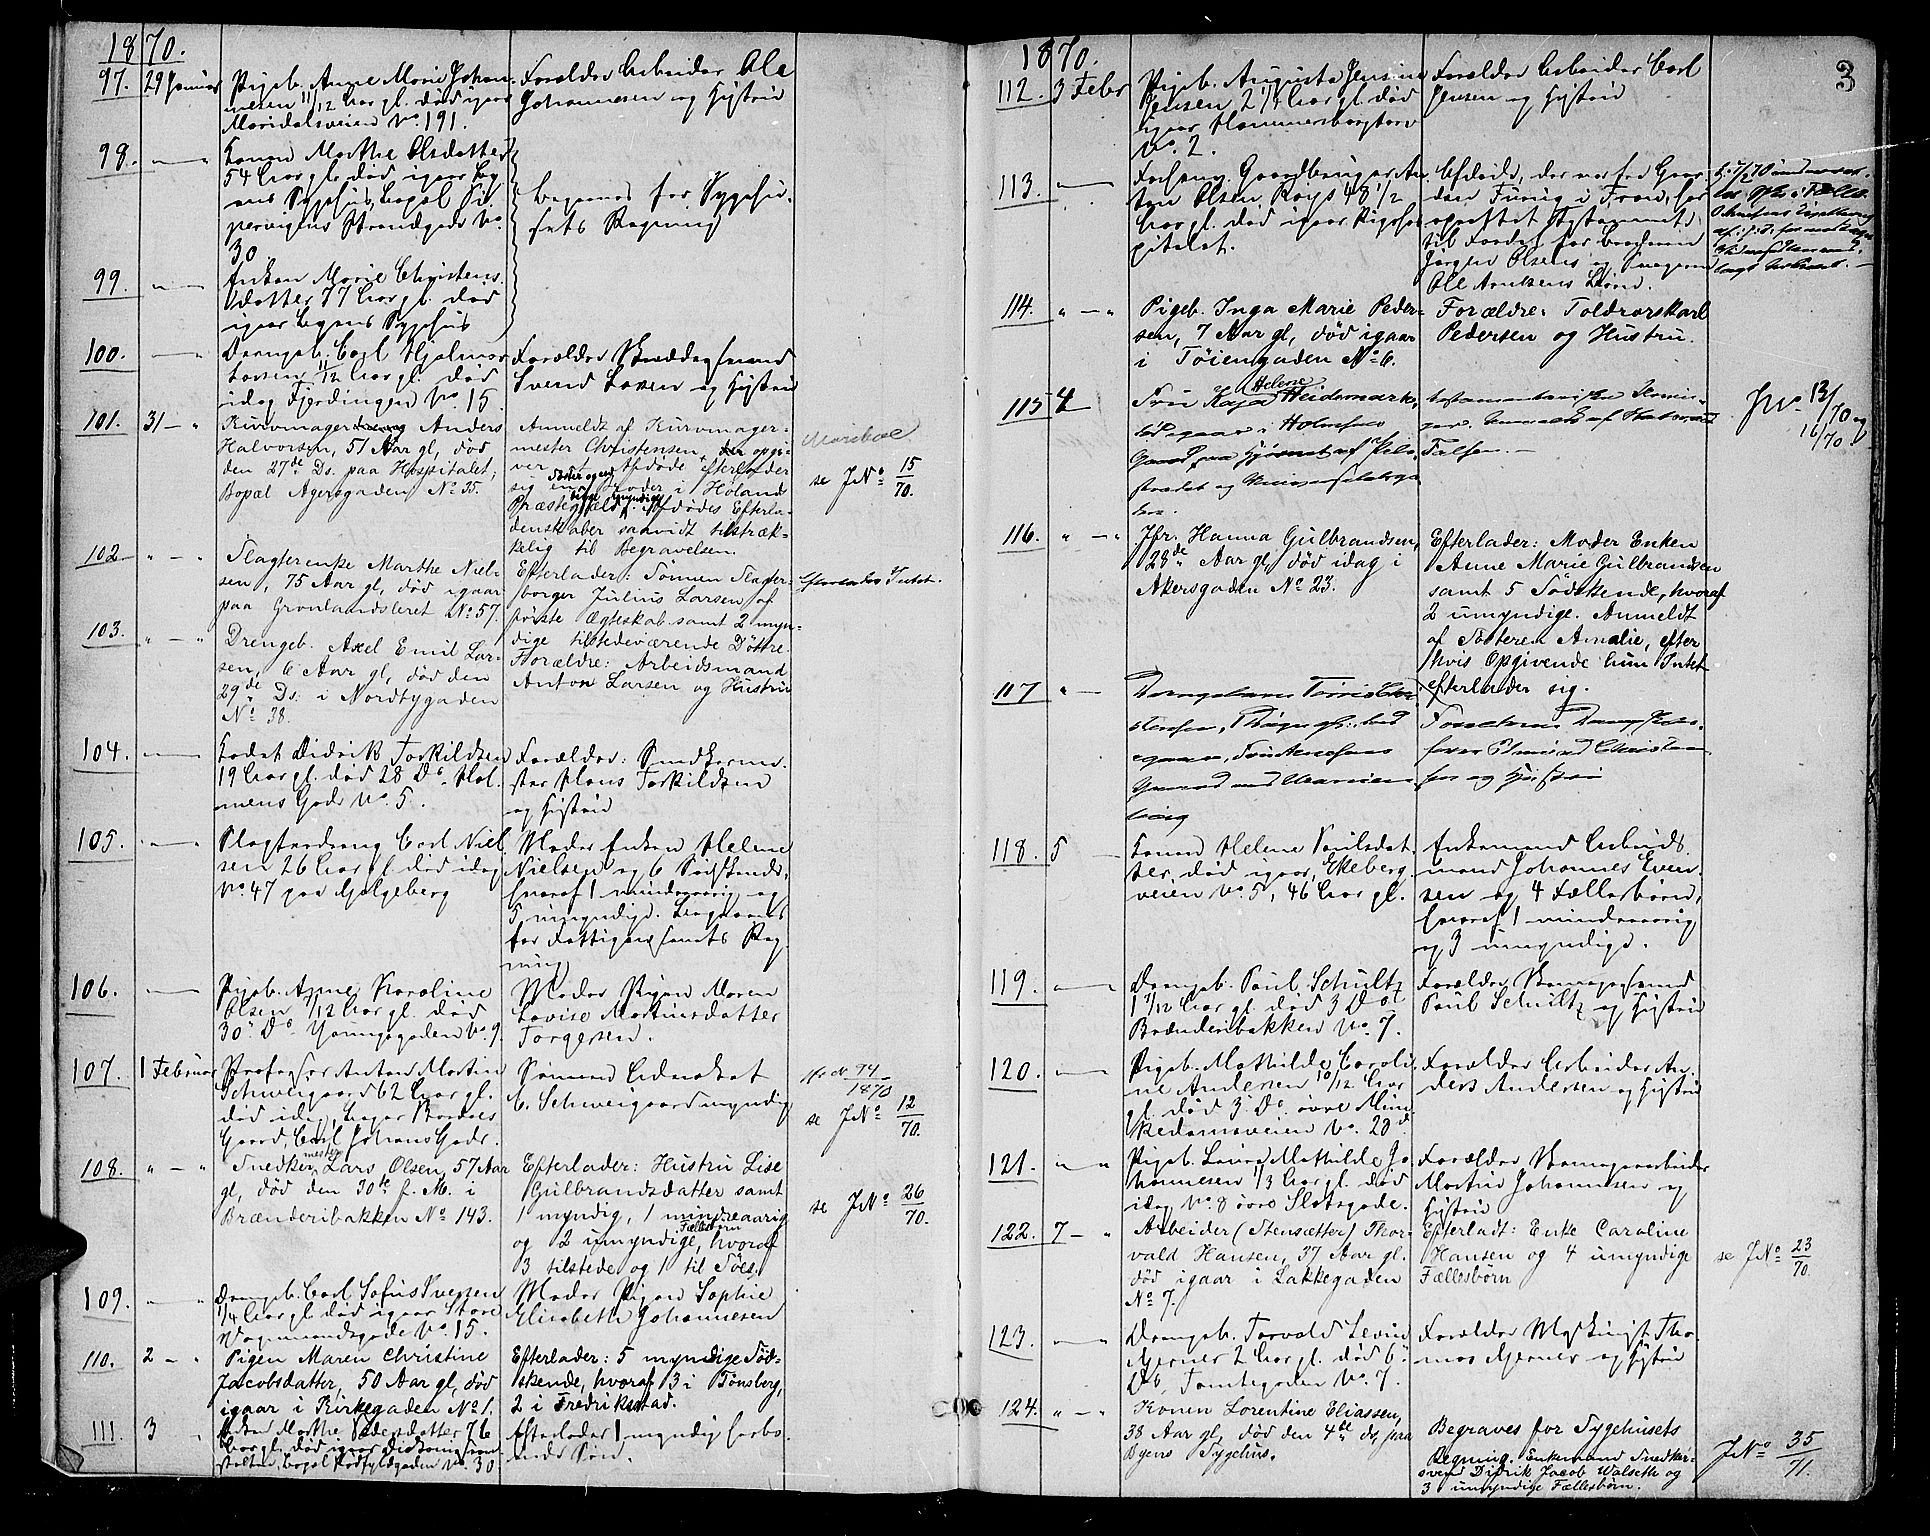 1870.
97. 29 Januar Pigeb. Anne Marie Johan-
nesen 11/12 Aar gl. død igaar
Maridalsveien No. 191.
Forældre Arbeider Ole
Johannesen og Hustru
98. Konen Marthe Olsdatter
54 Aar gl. død igaar By-
ens Sygehus, Bopæl Pi-
pervigens Strandgade No.
30
Begraves for Sygehu-
sets Regning
99. Enken Marie Christens-
datter 77 Aar gl. død
igaar Byens Sygehus
100. Drengeb. Carl Hjalmar
Larsen 11/12 Aar gl. død
idag Fjerdingen No. 15
Forældre
Svend Larsen og Hustru
101. 31 - " Kurvmager Anders
Halvorsen, 51 Aar gl, død
den 27de Ds. paa Hospitalet,
Bopæl Agersgaden No 35.
Anmeldt af Kurvmager-
mester Christensen, der opgi-
ver at Afdøde efterlader
sig en Broder i Høland
Præstegjeld. Afdødes Efterla-
denskaber saavidt tilstræk-
kelig til Begravelsen.
se JNo 15/70.
102 " - " Slagterenke Marthe Niel-
sen, 75 Aar gl, død igaar
paa Grønlandsleret No 57.
Efterlader: Sønnen Slagter-
borger Julius Larsen af
første Ægteskab samt 2 myn-
dige tilstedeværende Døttre.
Efterlader Intet.
103. " - " Drengeb. Axel Emil Lar-
sen, 6 Aar gl, død den
29de Ds. i Nordbygaden
No 38.
Forældre: Arbeidsmand
Anton Larsen og Hustru
104. Kadet Didrik Torkildsen
19 Aar gl. død 28 Ds. Hol-
mens Gade No. 5.
Forældre:
Hans Torkildsen
og Hustru
105. Slagterdreng Carl Niel-
sen 26 Aar gl. død idag
No. 47 paa Galgeberg
Moder Enken Helene
Nielsen og 6 Sødskende,
hvoraf 1 mindreaarig og
5 umyndige. Begraves
for Fattigvæsenets Reg-
ning
106. Pigeb. Anne Karoline
Olsen 1/12 Aar gl. død
30 Ds. Youngsgaden No. 9.
Moder Pigen Maren
Lovise Martinsdatter
Torgersen.
107. 1 Februar Professor Anton Martin
Schweigaard 62 Aar gl.
død idag,
Gaard, Carl Johans Gade.
Sønnen Advokat
C. Schweigaard myndig
74/1870
se JNo 12/70.
108. " - " Snedkermester Lars Olsen, 57 Aar
gl, død den 30te f. M. i
Brænderibakken No 143.
Efterlader: Hustru Lise
Gulbrandsdatter samt
1 myndig, 1 mindreaarig
og 2 umyndige Fællesbørn, hvoraf
3 tilstede og 1 til Søes.
se JNo 26/70.
109. Drengeb. Carl Sofus Iversen
1/4 Aar gl. død igaar Store
Vognmandsgade No. 15.
Moder Pigen Sophie
Elisabeth Johannesen
110. 2 - " Pigen Maren Christine
Jacobsdatter, 50 Aar gl, død
igaar i Kirkegaden No 1.
Efterlader: 5 myndige Sød-
skende, hvoraf 3 i Tønsberg,
2 i Fredrikstad.
111. 3 Enken Marthe Pedersdatter 76
Aar gl. død igaar
No. 30
Efterlader 1 myndig
Søn.
1870.
3
112. 3 Febr Pigeb. Augusta Jensine
Jensen 2 1/4 Aar gl. død
igaar Hammersborgtorv
No. 2.
Forældre Arbeider Carl
Jensen og Hustru
113. Gaardbruger An-
ton Olsen Røys 48 1/2
Aar gl. død igaar Rigshos-
pitalet.
Afdøde, der var fra Gaar-
den i Fron, har
oprettet Testament
til Fordel for Broderen
Jørgen Olsen og Svogeren
Ole
114. " - " Pigeb. Inga Marie Peder-
sen, 7 Aar gl, død igaar
i Tøiengaden No 6.
Forældre: Toldrorskarl
Pedersen og Hustru.
115 4 Fru Kaja Helene Heidemark,
død igaar i
Gaard paa Hjørnet af Pile-
stradet og
JNo. 13/70 og
16/70
116. " - " Jfr. Hanna Gulbrandsen,
28de Aar gl, død idag i
Akersgaden No 23.
Efterlader: Moder Enken
Anne Marie Gulbrandsen
samt 5 Sødskende, hvoraf
2 umyndige. Anmeldt
af Søsteren Amalie, efter
hvis Opgivende hun Intet
efterlader sig.
117 " - Drengebarn
Gaard ved
Forældrene
og Hustru
118. 5 Konen Helene Paulsdat-
ter, død igaar, Ekeberg-
veien No. 5, 46 Aar gl.
Enkemand Arbeids-
mand Johannes Even-
sen og 4 Fællesbørn,
hvoraf 1 mindreaarig
og 3 umyndige.
119. Drengeb. Paul Schultz
1 1/12 Aar gl. død 3 Ds.
Brænderibakken No. 7.
Forældre
Paul Schultz og Hustru
120. Pigeb. Mathilde Caroli-
ne Andersen 10/12 Aar
gl. død 3 Ds. øvre Mun-
kedamsveien No. 29d
Forældre Arbeider An-
ders Andersen og Hustru
121. Pigeb. Laura Mathilde Jo-
hannesen 1/3 Aar gl. død
idag No. 8 øvre Slotsgade.
Forældre
Martin Johannesen og
Hustru
122. 7 - " Arbeider (Stensætter) Thor-
vald Hansen, 37 Aar gl.
død igaar i Lakkegaden
No 7.
Efterladt: Enke Caroline
Hansen og 4 umyndige
Fællesbørn
se JNo 23/70.
123. Drengeb. Torvald Levin
Gjerner 2 Aar gl. død 6
Ds, Tomtegaden No. 7.
Forældre Maskinist Tho-
mas Gjerner og Hustru
124. " - " Konen Lorentine Eliassen,
38 Aar gl, død den 4de ds, paa
Byens Sygehus.
Begraves for Sygehusets
Regning. Enkemand Snedker-
svend Didrik Jacob Walseth og
3 umyndige Fællesbørn.
JNo 35/71.